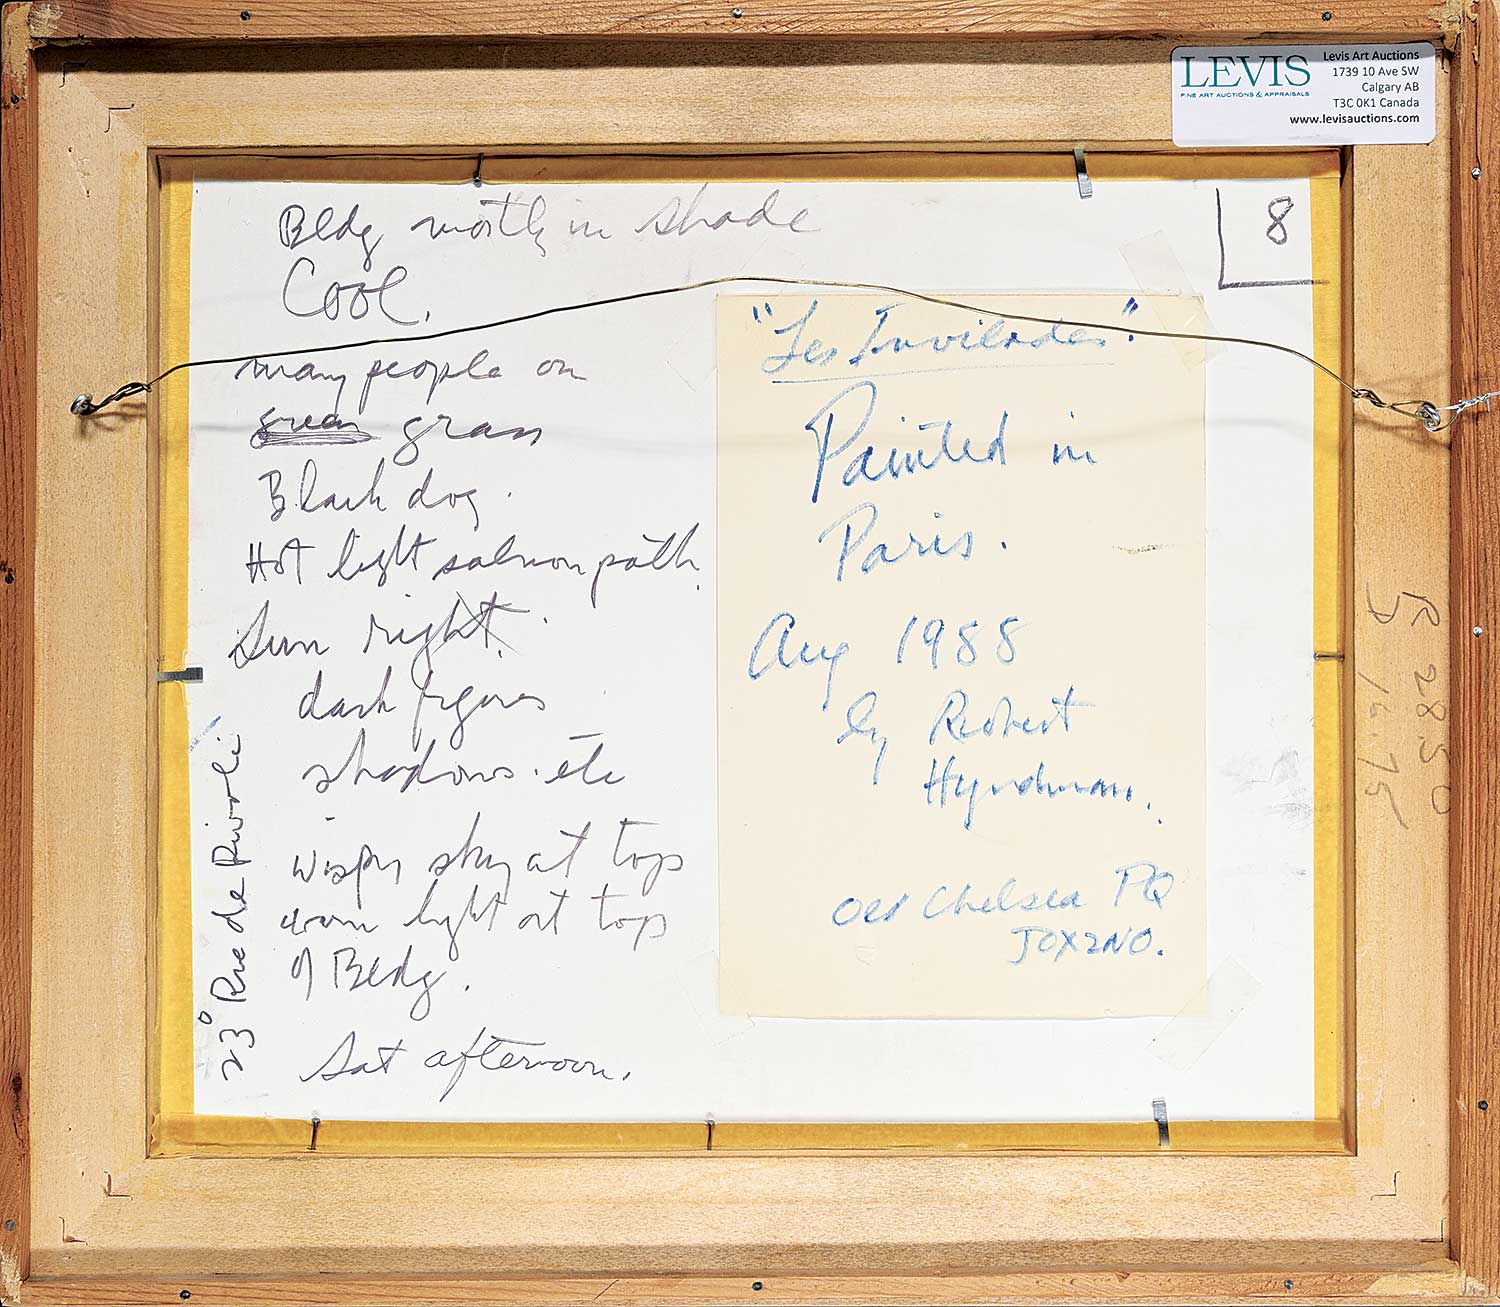 LEVIS
FINE ART AUCTIONS & APPRAISALS
Levis Art Auctions
1739 10 Ave SW
Calgary AB
T3C 0K1 Canada
www.levisauctions.com
8
Bldg mostly in shade
Cool.
many people on
green grass
Black dog.
Hot light salmon path.
Sun right.
dark figures
shadows. etc
wispy sky at tops
warm light at tops
of Bldg.
Sat afternoon.
23° Rue de Rivoli
"Les Invilades".
Painted in
Paris.
Aug 1988
by Robert
Hyndman.
Old Chelsea PQ
J0X2N0.
R 2850
16.75